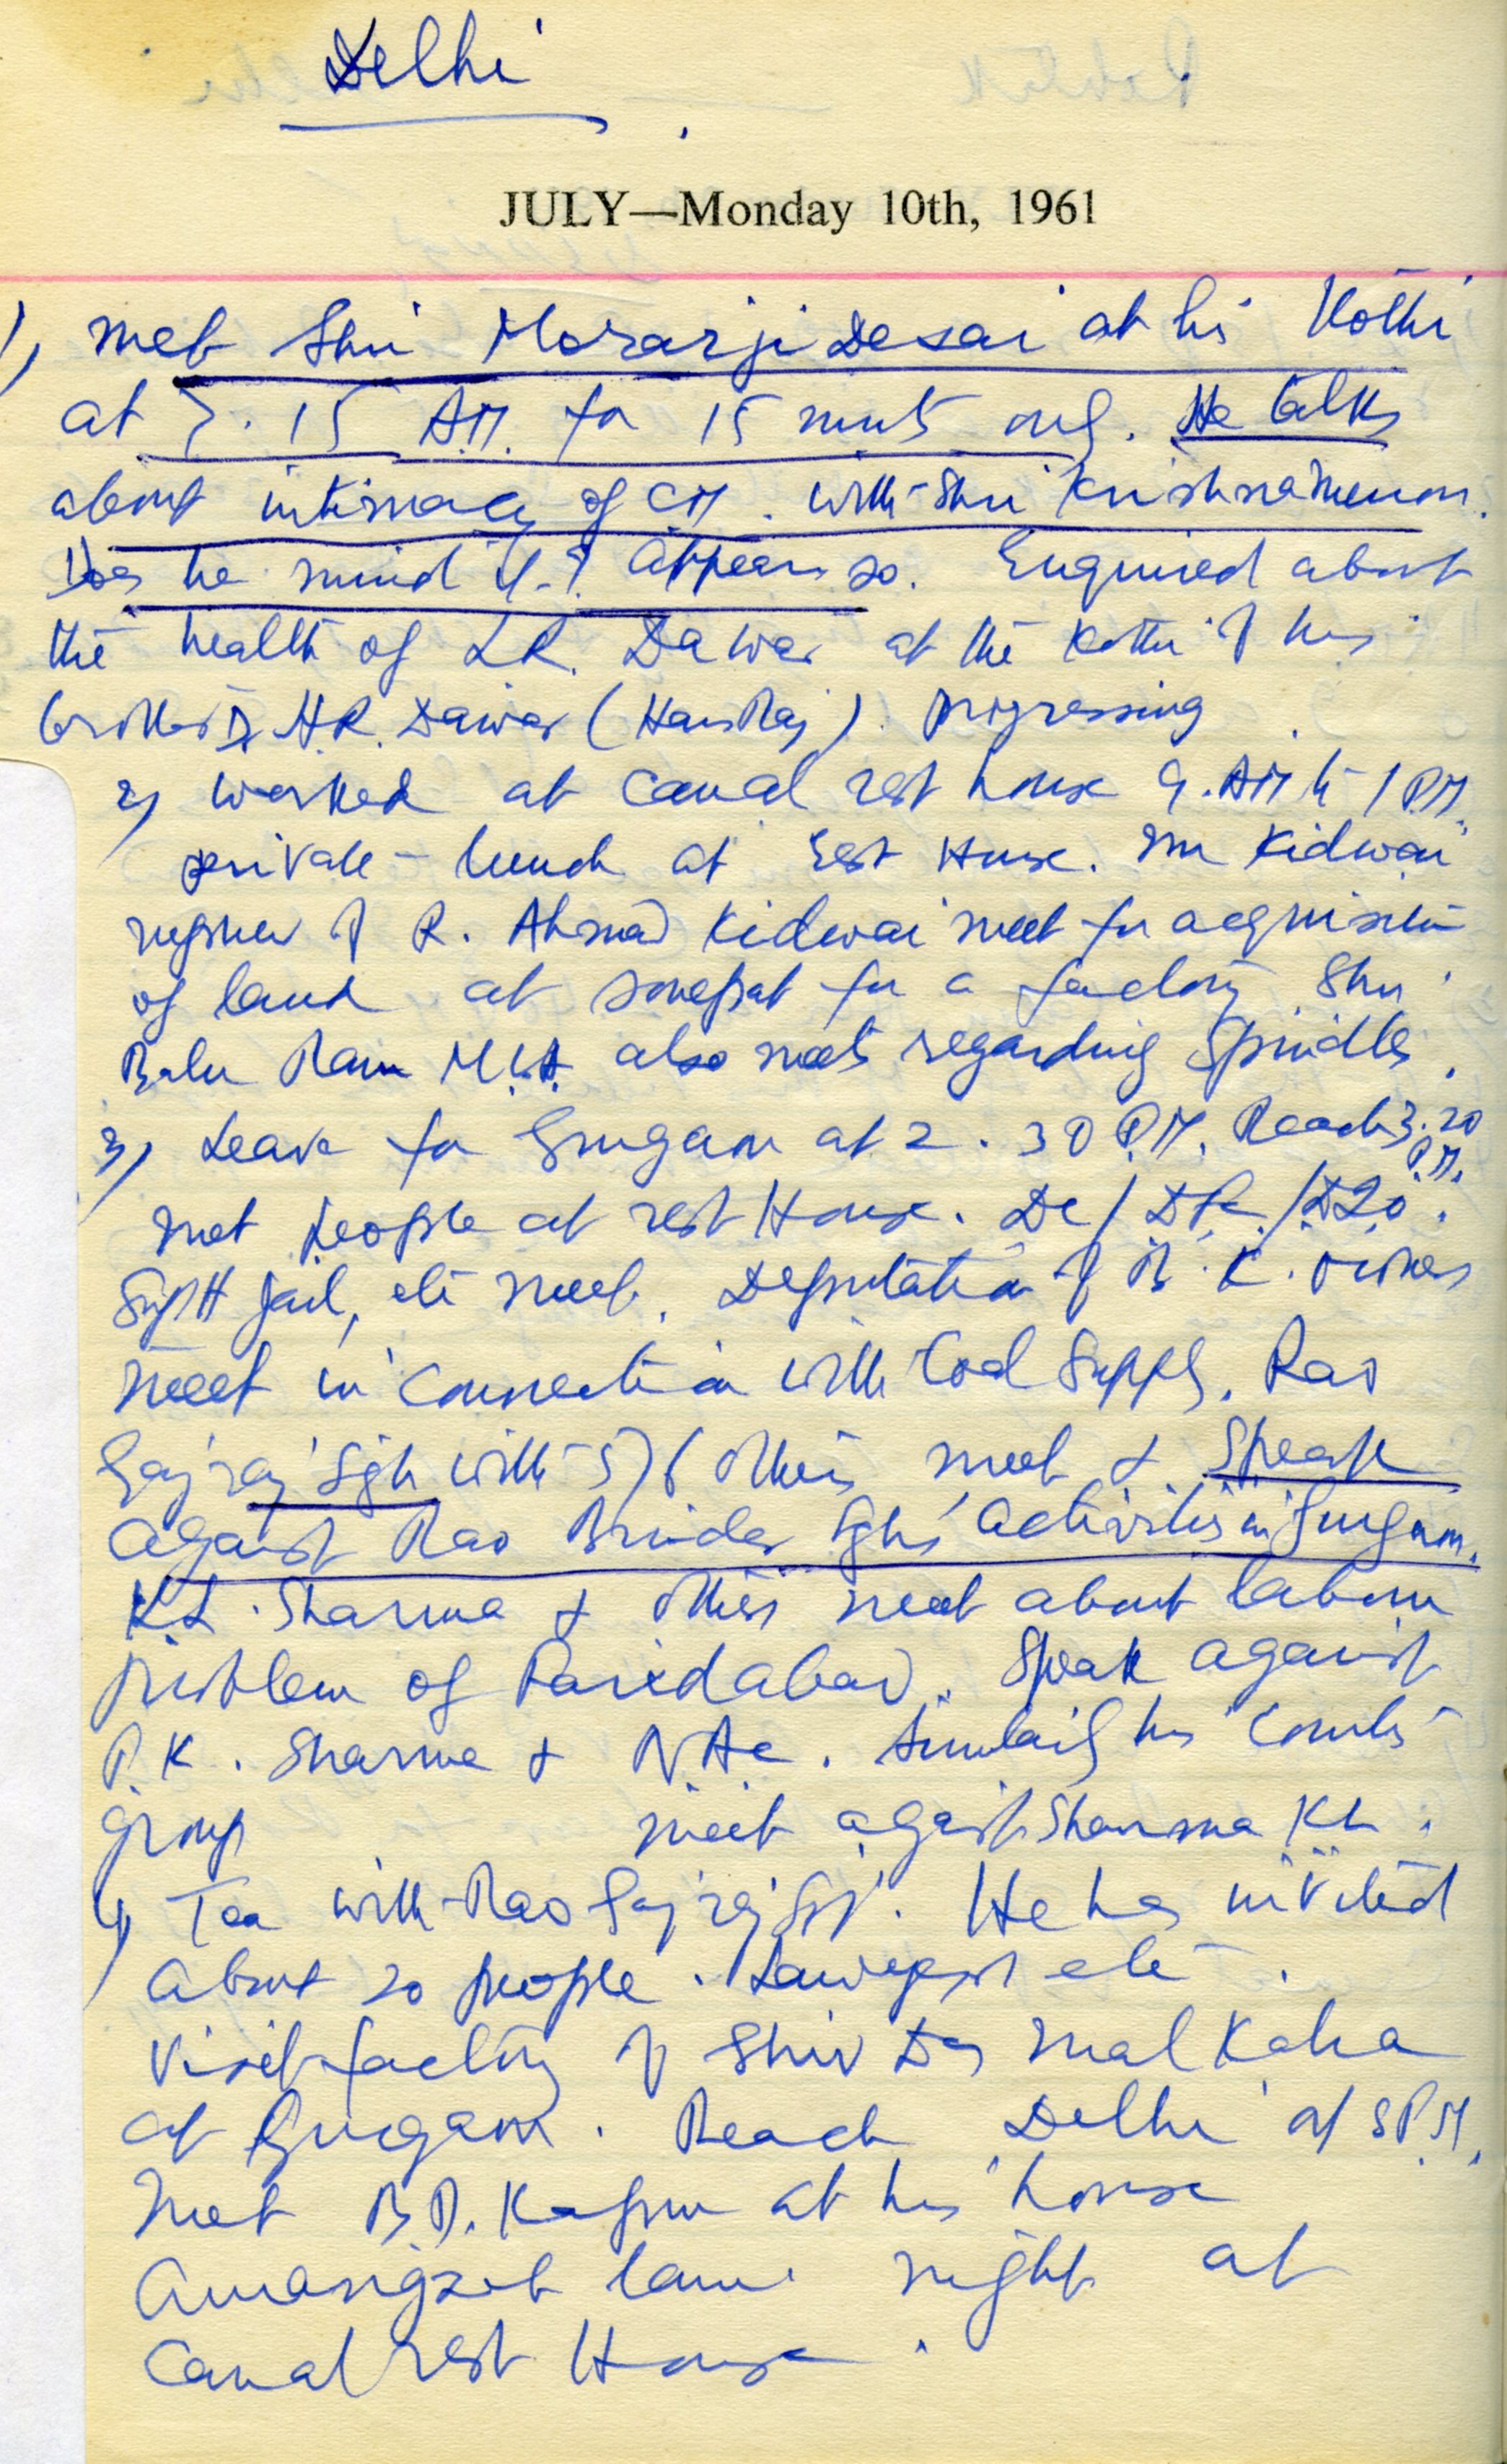 Delhi
JULY—Monday 10th, 1961
1) Met Shri Morarji Desai at his Kothi
at 7.15 A.M. for 15 muts only. He talks
about intimacy of CM. with Shri Krishna Menon.
Does he mind it? Appears so. Enquired about
the health of L.R. Dawar at the Kothi of his
brother H.R. Dawar (Hans Raj). progressing
2) worked at Canal rest house 9. AM to 1 P.M.
private lunch at rest House. Mr Kidwai
nephew of R. Ahmad Kidwai meet for acquisition
of land at Sonepat for a factory Shri
Balu Ram M.L.A. also meets regarding Spindles.
3) Leave for Gurgaon at 2.30 P.M. Reach 3.20
P.M.
Met people at rest House. DC / DPR /
Supdt Jail, etc meet. Deputation of B.K. owners
meet in connection with Coal Supply. Rao
Gajraj Sgh with 5/6 others meet & Speak
against Rao Birinder Sghs' activities in Gurgaon.
K.L. Sharma & others meet about labour
problem of Faridabad. Speak against
P.K. Sharma & Similarly his
group meet against Sharma KL.
4) Tea with Rao Gajraj Sgh. He has invited
about 20 people. etc.
Visit factory of Shiv Das Mal
at Gurgaon. Reach Delhi at 8 P.M.
Met B.D. Kapur at his house
Aurangzeb lane. night at
Canal rest House.